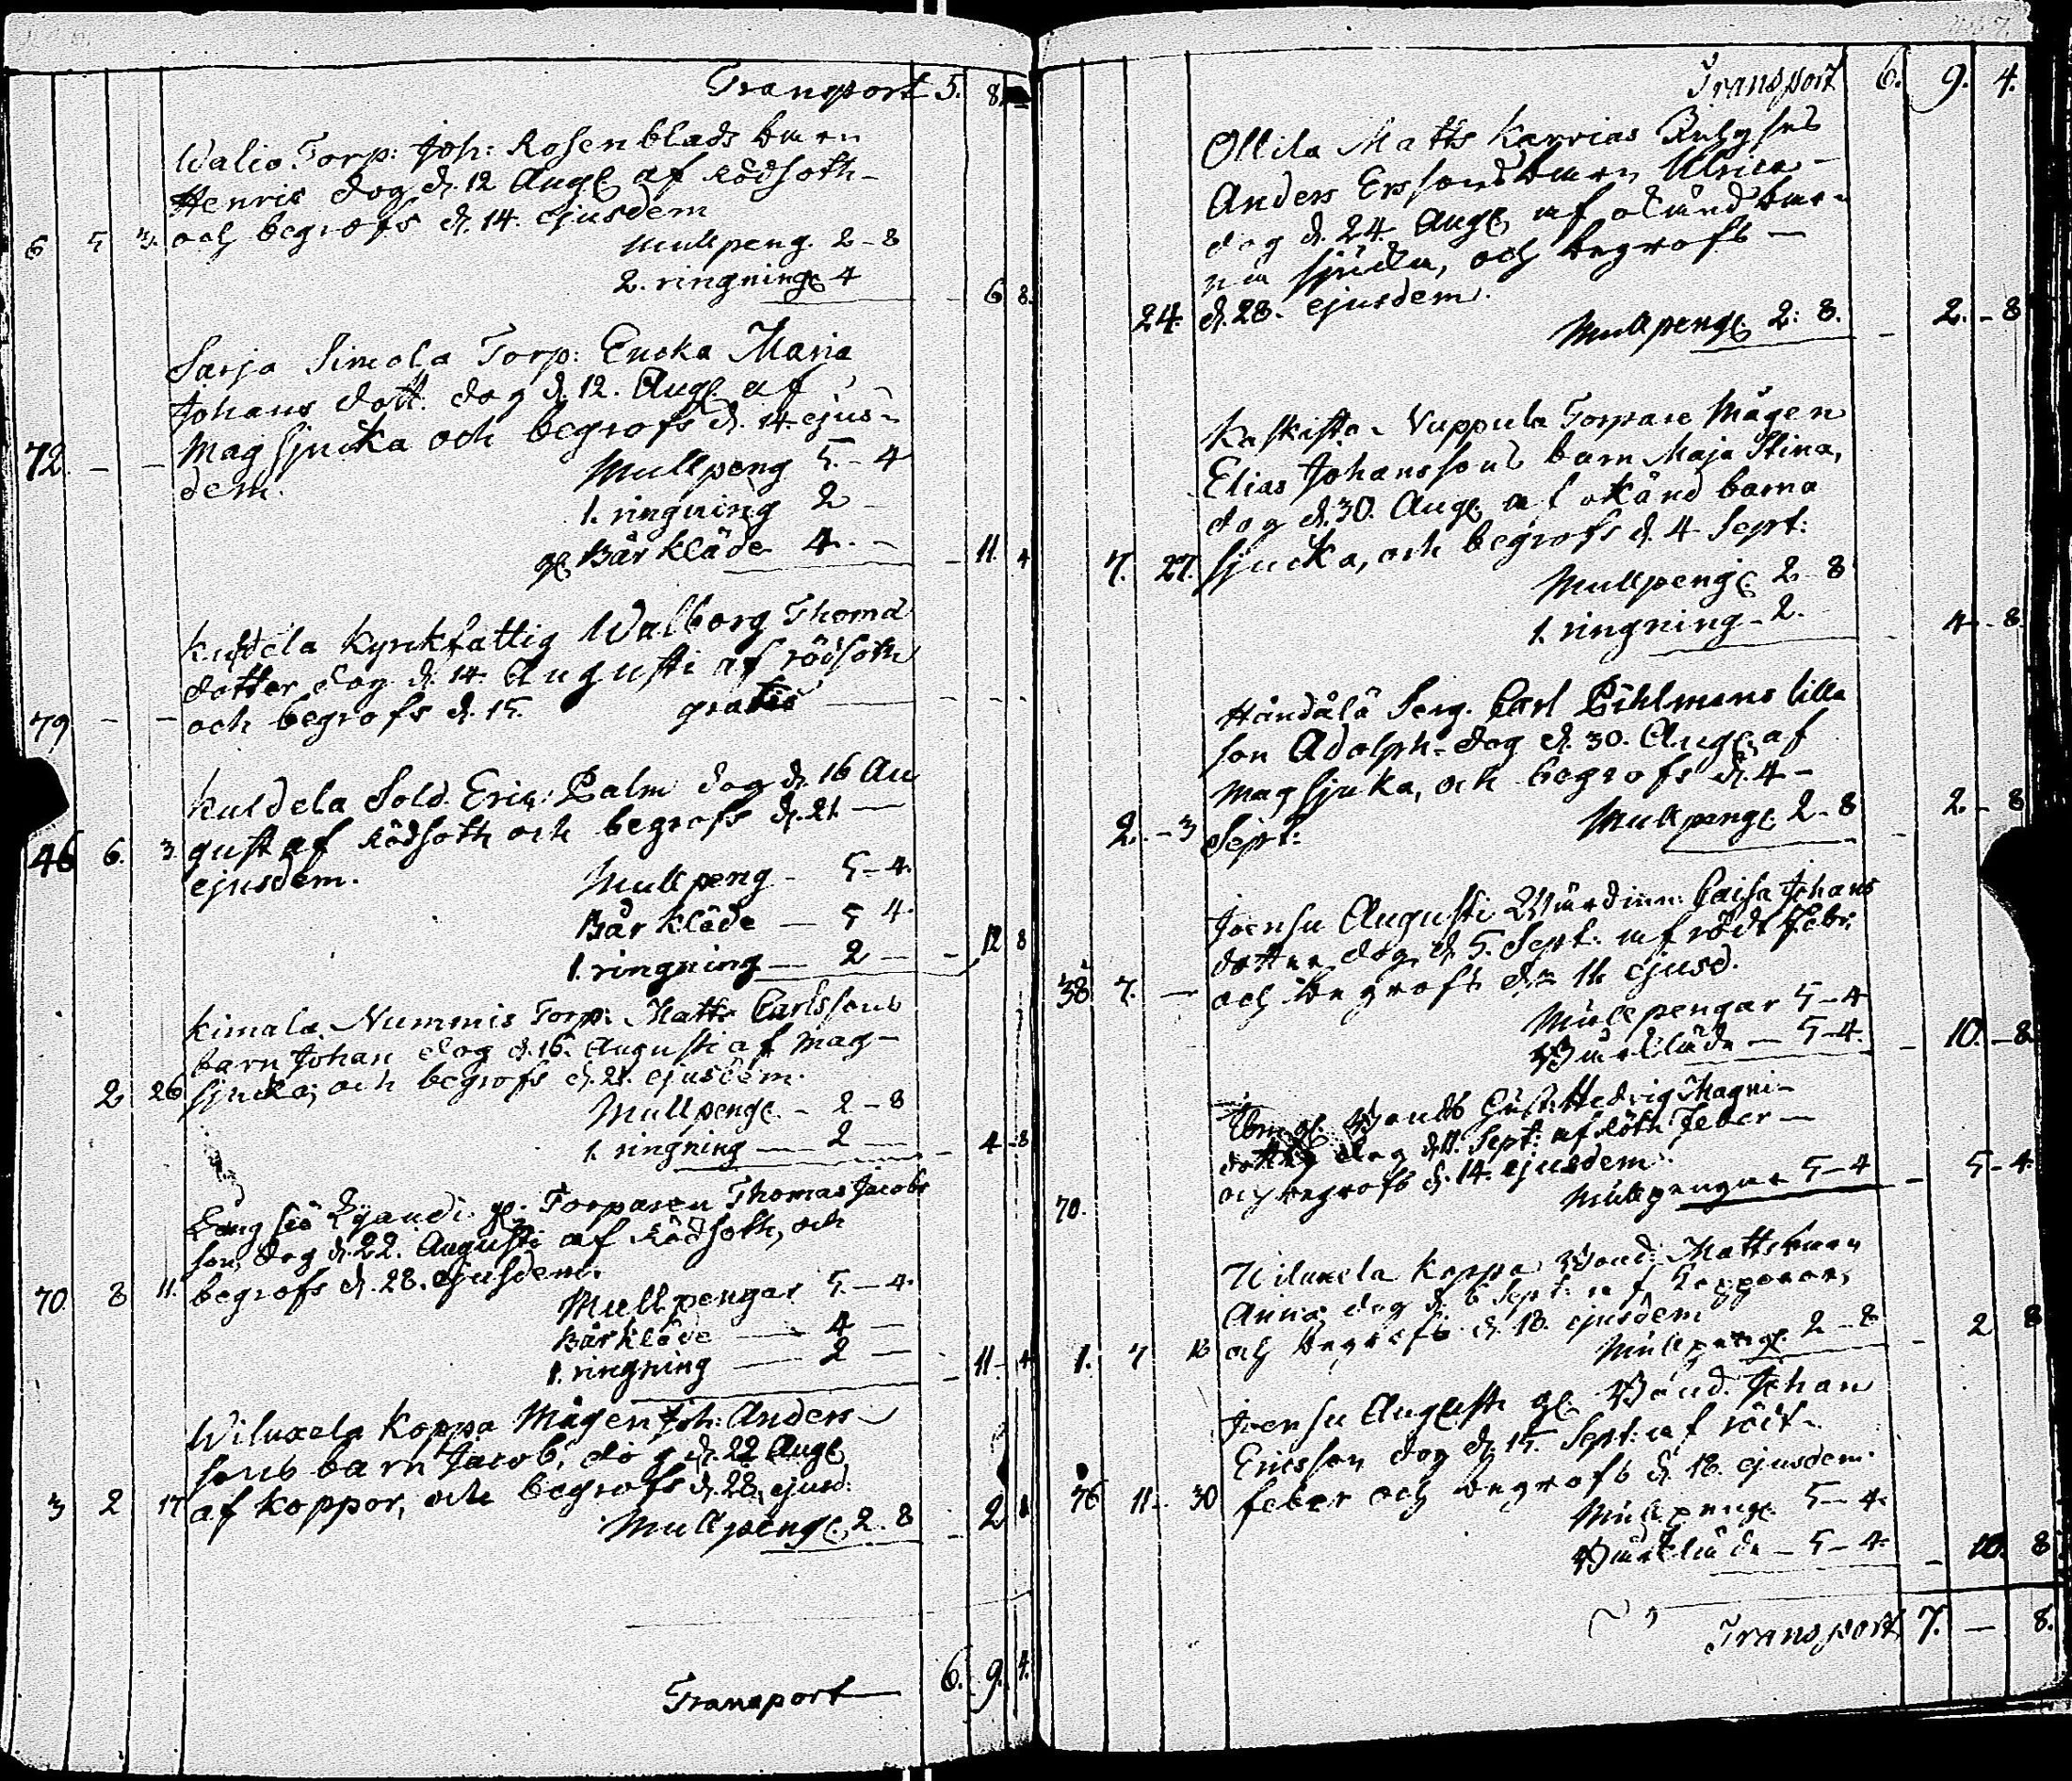 Transport 5. 8.
Walio Torp: Joh: Rosenblads barn
Henric dog d. 12 Aug. af Rödsoth
6 5 3. och begrofs d. 14. ejusdem
Mullpeng. 2-8
2. ringning 4 - 6 8.
Sarja Simola Torp: Encka Maria
Johans dott. dog d. 12. Aug. af
72. - - Magsjucka och begrofs d. 14 ejus-
dem.
Mullpeng 5.-4
1. ringning 2 -
gl. Bårkläde 4. - - 11. 4
Kusdela Kyrkfattig Walborg Thomæ
dotter dog d. 14. Augusti af rödsoth
79 - - och begrofs d. 15. gratis - - -
Kusdela Sold. Eric Palm dog d. 16 Au
46 6. 3. gust af Rödsoth och begrofs d. 21. -
ejusdem.
Mullpeng - 5-4.
Bår kläde - 5 4.
1. ringning - 2 - - 12 8
Kimala Nummis Torp: Matts Carlssons
barn Johan dog d. 16. Augusti af Mag-
2 26 sjucka, och begrofs d. 21. ejusdem.
Mullpeng. - 2-8
1. ringning - 2 - - 4-8
Långsiö gl. Torparen Thomas Jacobs
son, dog d. 22. Augusti af Rödsoth, och
70. 8 11. begrofs d. 28. ejusdem.
Mullpengar 5.-4.
Bårkläde - 4 -
1. ringning - 2 - - 11-4
Wiluxela Koppa Mågen Joh: Anders
sons barn Jacob, dog d. 22 Aug.
3 2 17 af Koppor, och begrofs d. 28. ejusd.
Mullpeng. 2.8 - 2 8
Transport 6. 9. 4.
Transport 6. 9. 4.
Ollila Matts Karrias
Anders Erssons barn Ulrica
dog d. 24. Aug. af okänd barn
na sjuka, och begrofs -
24. d. 28. ejusdem.
Mullpeng. 2: 8. - 2.-8
Kaskista Nuppula Torpare Mågen
Elias Johanssons barn Maja Stina,
dog d. 30. Aug. af okänd barna
7. 27. sjucka, och begrofs d. 4 Sept:
Mullpeng. 2 8
1. ringning - 2. - 4-8.
Handålä Serg. Carl Pihlmans lilla
son Adolph - dog d. 30. Aug. af
Magsjuka, och begrofs d. 4 -
2. - 3 Sept: Mullpeng. 2-8 - 2-8
Joensu Augusti Wärdinn: Caisa Johans
dotter dog d. 5. Sept: af rödt febr:
38 7. - och begrofs d. 11. ejusd.
Mullpengar 5-4
Bårkläde - 5-4. - 10.-8
gl. Bonds Hedvig Magni-
dotter dog d. 11. Sept: af röth feber -
70. och begrofs d. 14. ejusdem.
Mullpengar 5-4 - 5-4.
Wiluxela Koppa Bond: Matts barn
Anna, dog d. 6 Sept: af Kopporor,
1. 7 18 och begrofs d. 18. ejusdem
Mullpeng. 2-8 - 2 8
Joensu Augusti gl. Bond. Johan
Ericsson dog d. 15. Sept: af röd-
76 11. 30 feber och begrofs d. 18. ejusdem.
Mullpeng. 5-4.
Bårkläde - 5-4. - 10. 8
Transport 7. - 8.